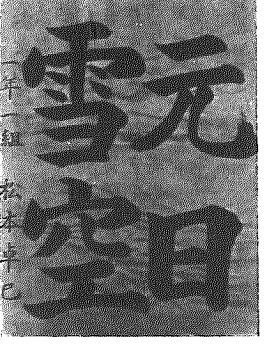 元日
雪空
一年一組 松本幸己